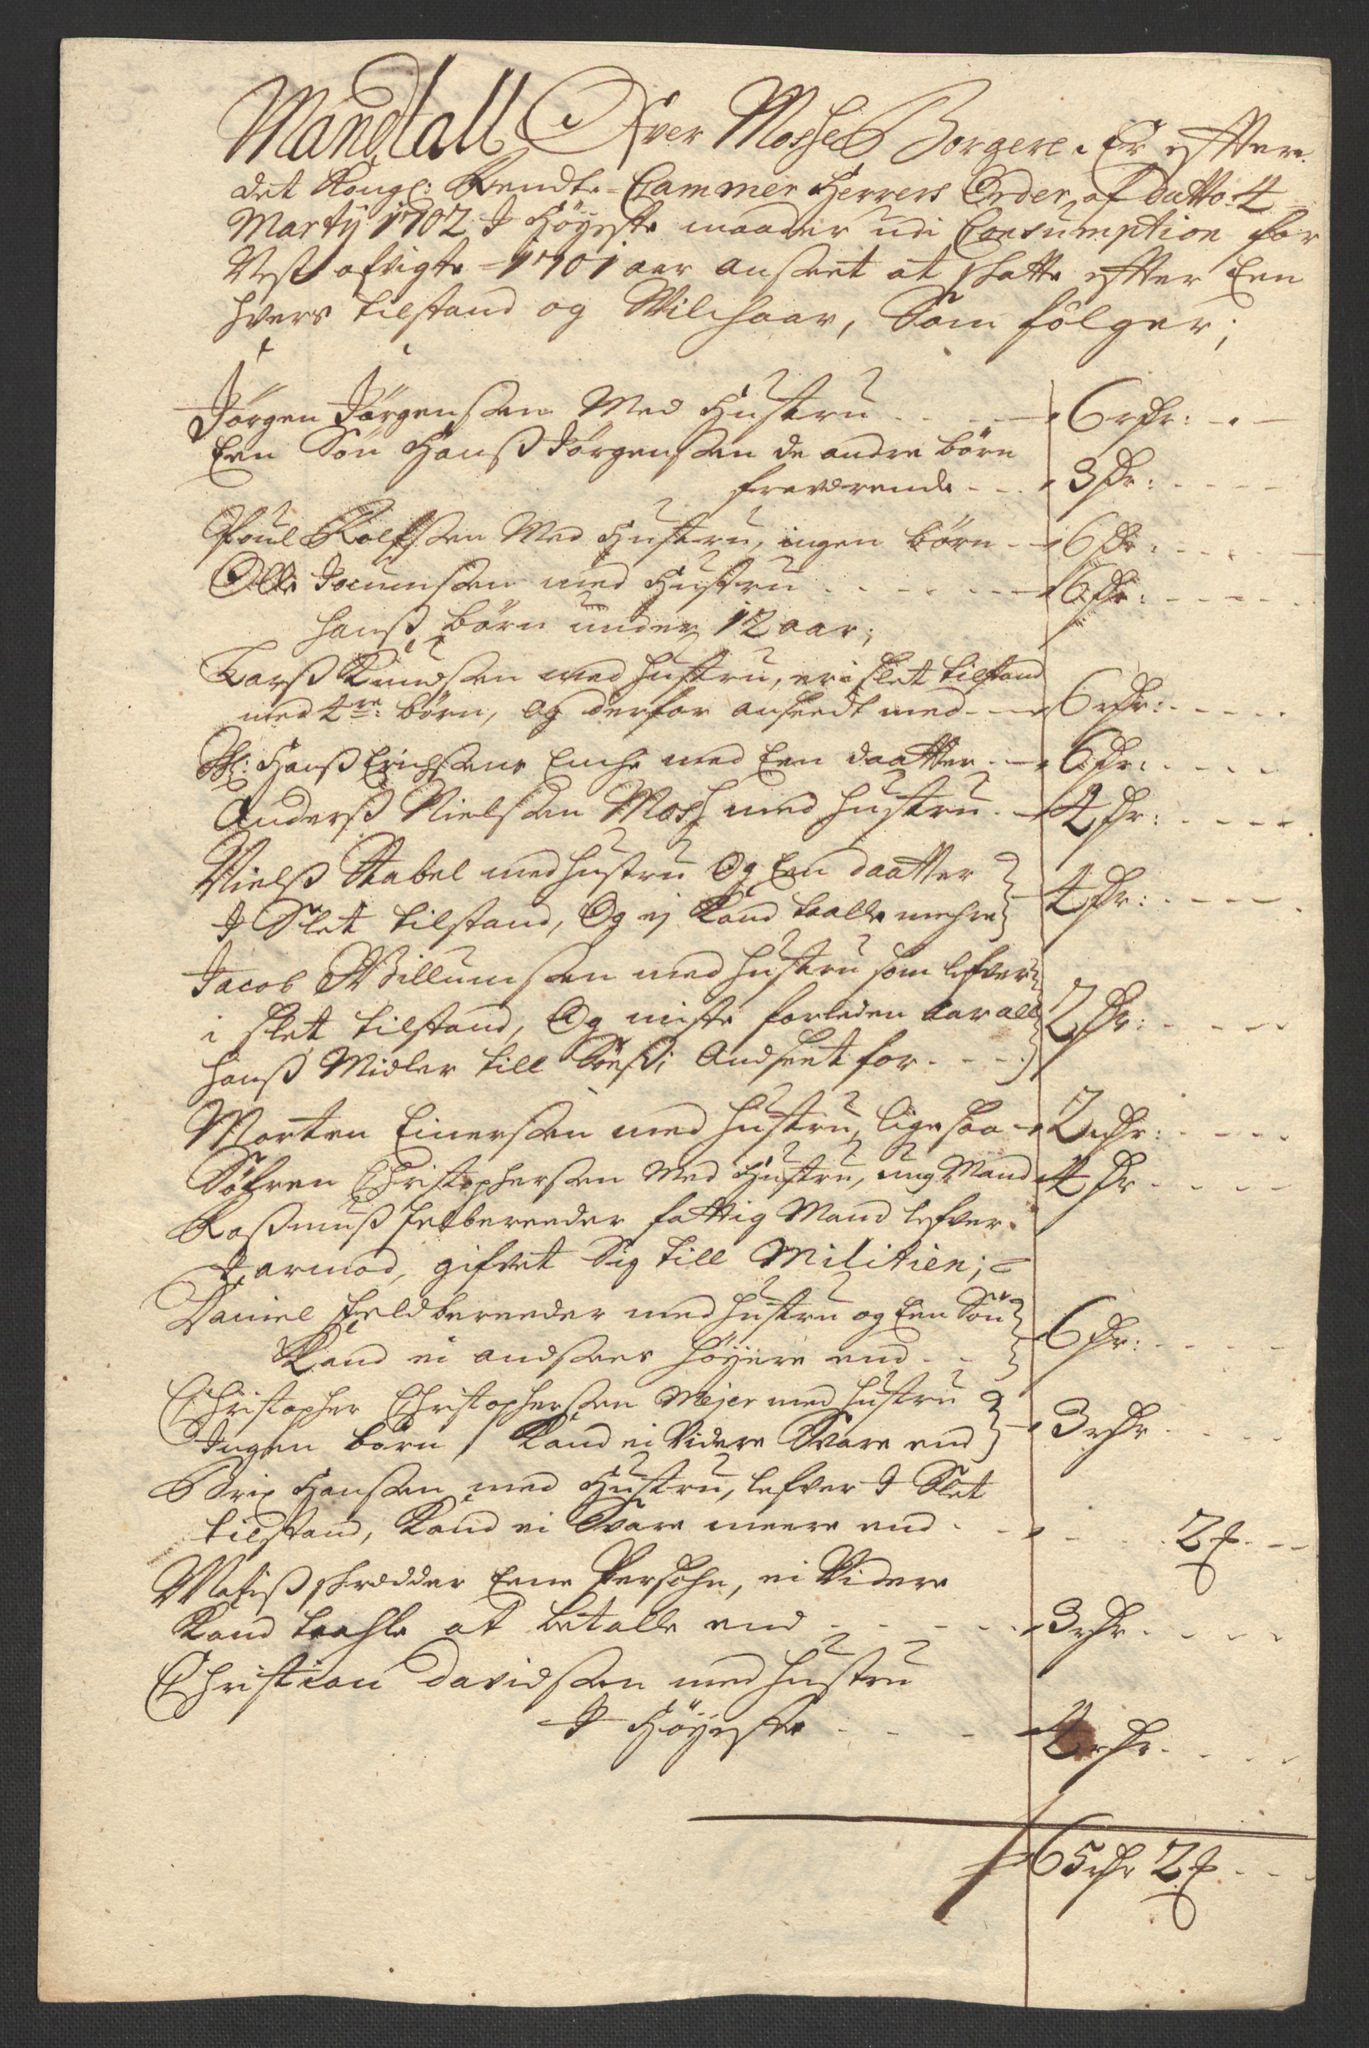 Mandtall Ofver Mosse Borgere, Er efter
det Kongl: Rendte-Cammer Herrers Order, af datto 4
Martij 1702 I Høyeste maader udi Consumption for
Nest afvigte 1701 aar anseet at skatte efter Een
hvers tilstand og Vilchaar, Som følger;
Jørgen Jørgensen Med Hustru 6 rdr:
Een Søn Hanß Jørgensen de andre børn
fraværende 3 dr:
Poul Rolfsen Med Hustru, ingen børn 6 dr:
Olle Jocumsen med Hustru 6 dr:
hanß børn under 12 aar;
Larß Knudsen med hustru, er i slet tilstand
med 4re: børn, og derfor anseedt med 6 rdr:
Sl: Hanß Erichsens Enche med Een daatter 6 dr:
Anderß Nielsen Moss med hustru 4 dr:
Nielß Stabel med hustru Og Een daatter
I Slet tilstand, Og ej Kand taalle mehre 4 dr:
Jacob Willumsen med hustru som lefver
i slet tilstand, Og miste forleden Aar all
hanß Midler till Søeß; Andseet for 2 dr:
Morten Einersen med hustru, ligesaa 2 rdr:
Søfren Christophersen Med Hustru, ung Mand 4 dr
Raßmuß feldbereeder fattig Mand lefver
I armod, gifvet Sig till Militien;
Daniel feldbereeder med hustru og Een Søn
Kand ei andsees høyere end 6 dr:
Christopher Christophersen Mejer med hustru
Ingen børn Kand ei Videre Svare end 3 rdr
Brix Hansen med Hustru, lefver I Slet
tilstand, Kand ei Svare meere end 2 f
Matiß skrædder Eene Persohn, ei Videre
Kand taahle at betalle end 3 rdr
Christian Davidsen med hustru
I Høyeste 4 rdr
65 rdr 2 f